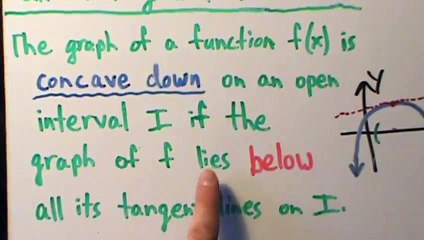 The graph of a function f(x) is
concave down on an open
interval I if the
graph of f lies below
all its tangent lines on I.
y